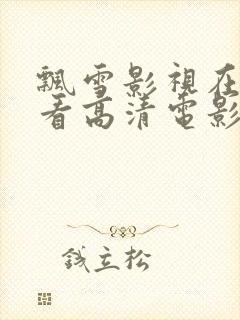 飄雪影視在
看高清電影
錢立松